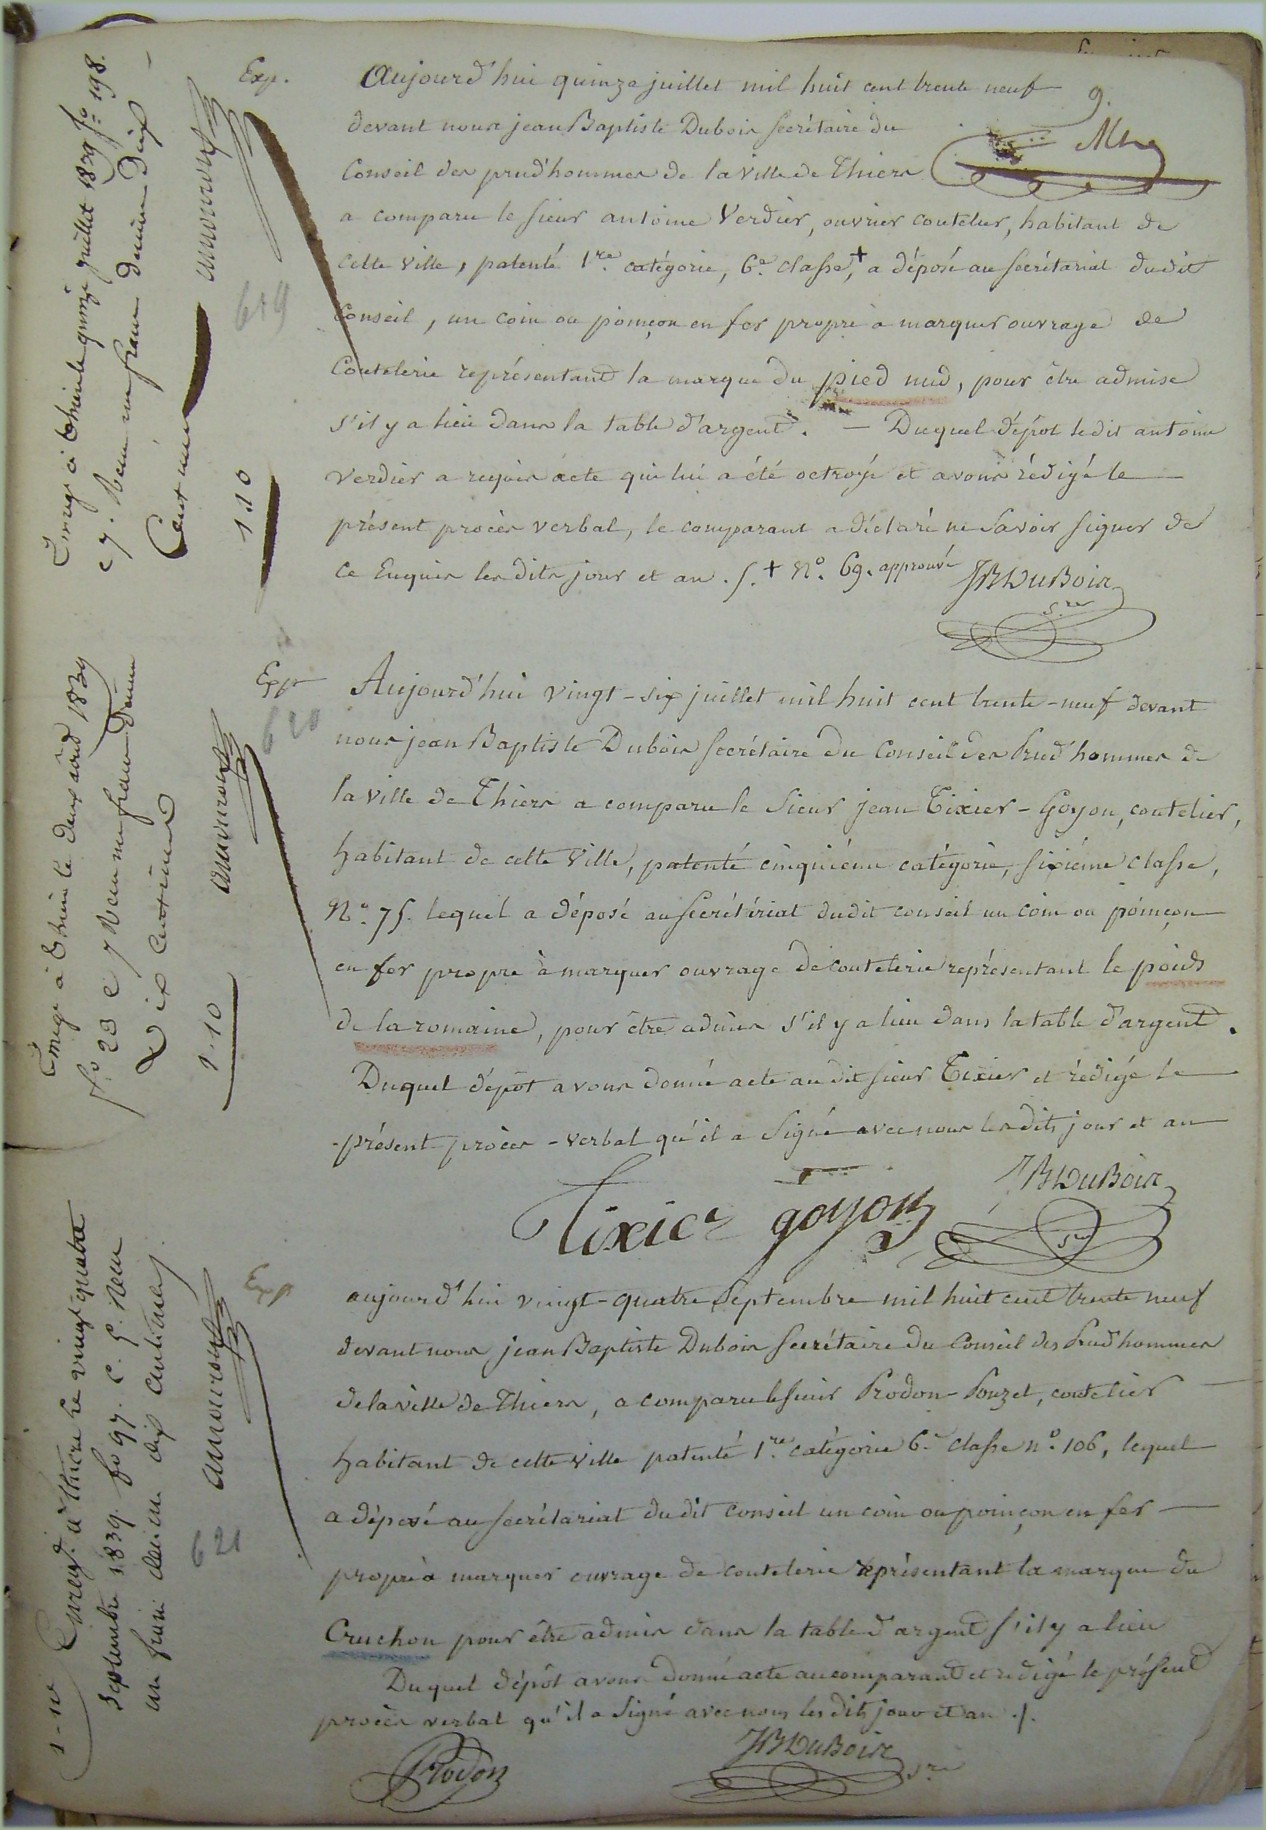 9.
Exp. Aujourd'hui quinze juillet mil huit cent trente neuf
devant nous jean Baptiste Dubois secrétaire du
Conseil des prud'hommes de la ville de Thiers
a comparu le sieur antoine Verdier, ouvrier coutelier, habitant de
cette ville, patenté 1re catégorie, 6e classe,+ a déposé au secrétariat dudit
Conseil, un coin ou poinçon en fer propre a marquer ouvrage de
Coutelerie représentant la marque du pied nud, pour être admise
s'il y a lieu dans la table d'argent. — Duquel dépôt ledit antoine
verdier a requis acte qui lui a été octroyé et avons rédigé le
présent procès verbal, le comparant a déclaré ne savoir signer de
ce Enquis les dits jour et an ./. + No. 69. approuvé JBDuBois
Sre
619
Enregé à thiers le quinze juillet 1839 fo 198.
c 7. Reçu un franc decime dix
Centimes
1.10
Exp. Aujourd'hui vingt-six juillet mil huit cent trente-neuf devant
nous jean Baptiste Dubois secrétaire du Conseil des Prud'hommes de
la ville de Thiers a comparu le sieur jean Tixier-Goyon, coutelier,
habitant de cette ville, patenté cinquième catégorie, sixième classe,
No. 75. lequel a déposé au secrétériat dudit conseil un coin ou poinçon
en fer propre à marquer ouvrage de coutelerie représentant le poids
de la romaine, pour être admis s'il y a lieu dans la table d'argent.
Duquel dépôt avons donné acte audit sieur Tixier et rédigé le
présent procès-verbal qu'il a signé avec nous les dits jour et an
Tixier goyon JBDuBois
Sre
620
Enregé à thiers le deux août 1839
fo 23 c 7 Reçu un franc decime
Dix centimes
1.10
Exp. aujourd'hui vingt-quatre septembre mil huit cent trente neuf
devant nous jean Baptiste Dubois secrétaire du Conseil des Prud'hommes
de la ville de Thiers, a comparu le sieur Prodon-Pouzet, coutelier
habitant de cette ville patenté 1re catégorie 6e classe no. 106, lequel
a déposé au secrétariat dudit conseil un coin ou poinçon en fer
propre à marquer ouvrage de coutelerie représentant la marque du
Cruchon pour être admis dans la table d'argent s'il y a lieu
Duquel dépôt avons donné acte au comparant et rédigé le présent
procès verbal qu'il a signé avec nous les dits jour et an ./.
Prodon JBDuBois
Sre
621
Enregé à thiers le vingt quatre
septembre 1839. fo 97. c. 5. Reçu
un franc decime dix centimes
1-10